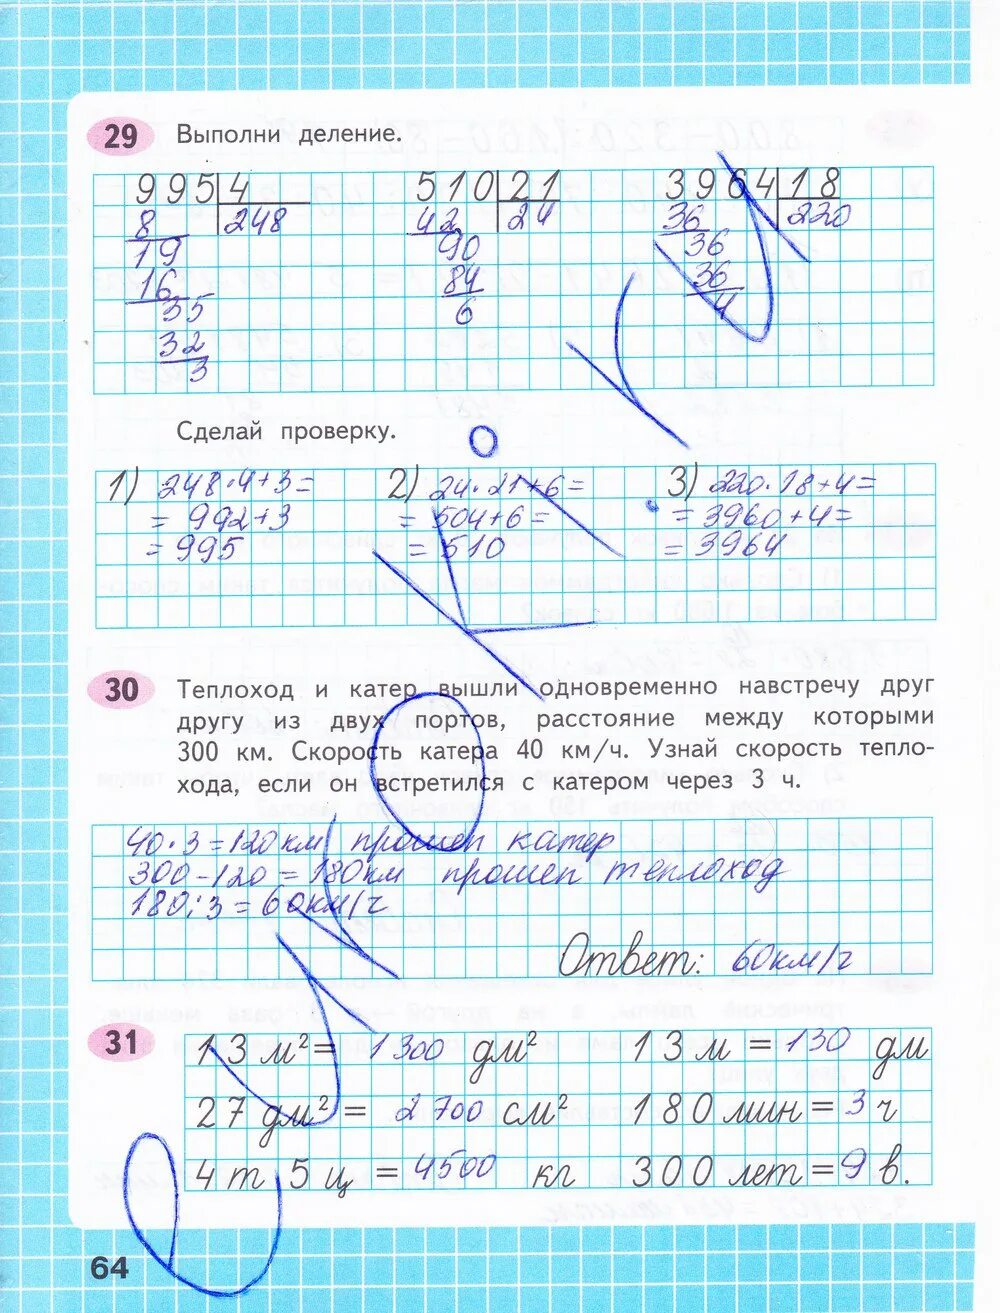 29 Выполни деление.
995 4 510 21 3964 18
8 248 42 24 36 220
19 90 36
16 84 36
35 6 4
32
3
Сделай проверку.
1) 248·4+3= 2) 24·21+6= 3) 220·18+4=
= 992+3 = 504+6= = 3960+4=
= 995 = 510 = 3964
30 Теплоход и катер вышли одновременно навстречу друг
другу из двух портов, расстояние между которыми
300 км. Скорость катера 40 км/ч. Узнай скорость тепло-
хода, если он встретился с катером через 3 ч.
40·3=120км прошел катер
300-120=180км прошел теплоход
180:3=60км/ч
Ответ: 60км/ч
31 13 м² = 1300 дм² 13 м = 130 дм
27 дм² = 2700 см² 180 мин = 3 ч
4 т 5 ц = 4500 кг 300 лет = 9 в.
64